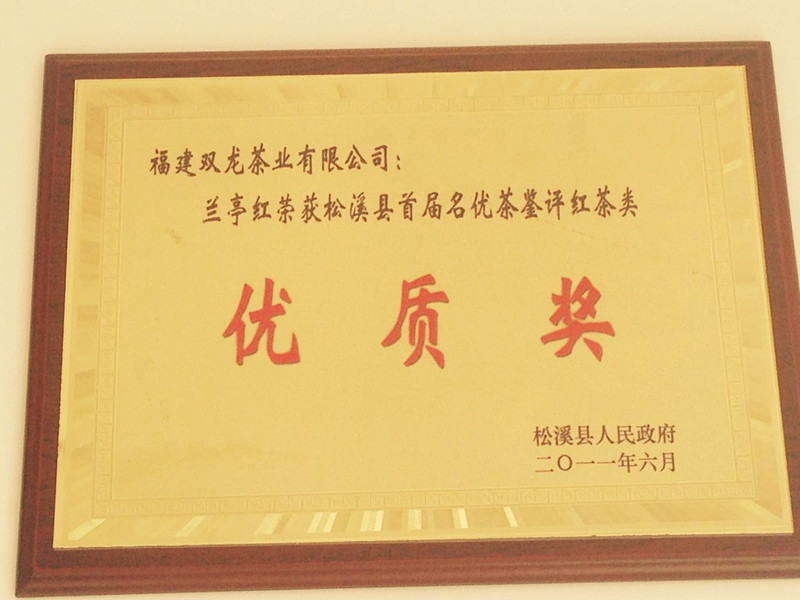 福建双龙茶业有限公司：
兰亭红荣获松溪县首届名优茶鉴评红茶类
优质奖
松溪县人民政府
二〇一一年六月